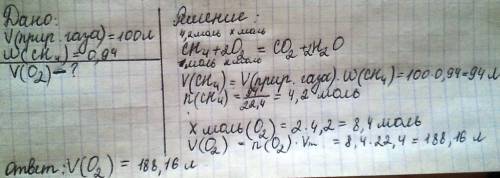 Дано:
V(прир. газа)=100л
W(CH₄)=0,94
V(O₂)-?
Решение:
4,2моль x моль
CH₄+2O₂ = CO₂+2H₂O
1моль 2моль
V(CH₄)=V(прир. газа)·W(CH₄)=100·0,94=94л
n(CH₄)=94/22,4=4,2 моль
X моль(O₂)=2·4,2=8,4 моль
V(O₂)=n(O₂)·Vm=8,4·22,4=188,16 л
ответ: V(O₂)=188,16 л